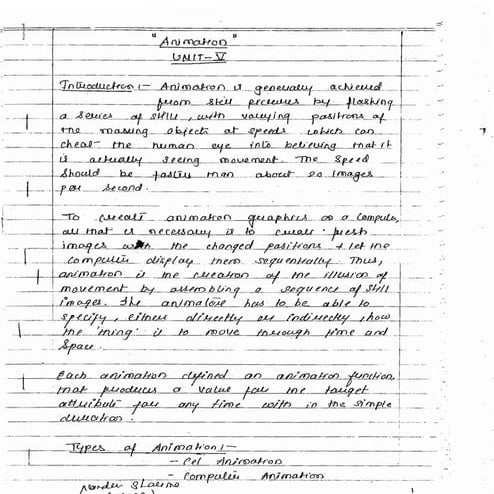 "Animation"
UNIT-V
Introduction:- Animation is generally achieved
from still pictures by flashing
a series of stills, with varying positions of
the moving objects at speeds which can
cheat the human eye into believing that it
is actually seeing movement. The speed
should be faster than about 20 images
per second.
To create animation graphics on a computer,
all that is necessary is to create fresh
images with the changed positions & let the
computer display them sequentially. Thus,
animation is the creation of the illusion of
movement by assembling a sequence of still
images. The animator has to be able to
specify, either directly or indirectly, how
the 'thing' is to move through time and
space.
Each animation defined an animation function
that produces a value for the target
attribute for any time with in the simple
duration.
Types of Animation:-
- Cel Animation
- Computer Animation